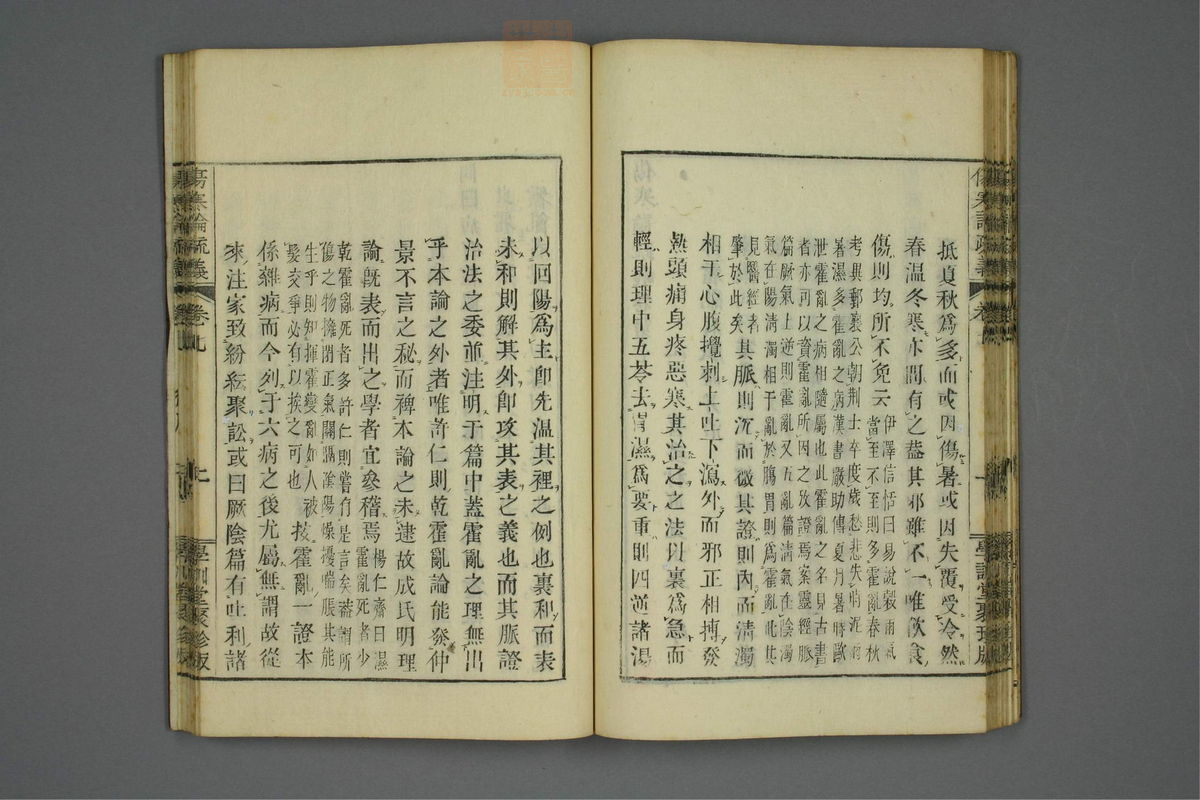 抵夏秋爲多而或因傷暑或因失覆受冷然
春温冬寒亦間有之葢其邪雖不一唯飮食
傷則均所不免云
伊澤信恬曰易說穀雨氣
當至不至則多霍亂春秋
考異郵襄公朝荆士卒度歲愁悲失時泥雨
暑濕多霍亂之病漢書嚴助傳夏月暑時歐
泄霍亂之病相隨屬也此霍亂之名見古書
者亦可以資霍亂所因之攷證焉案靈經脈
篇厥氣上逆則霍亂又五亂篇淸氣在陰濁
氣在陽淸濁相干亂於腸胃則爲霍亂此其
見醫經者
肇於此矣
其脈則沉而微其證則內而淸濁
相干心腹攪刺上吐下瀉外而邪正相搏發
熱頭痛身疼惡寒其治之之法以裏爲急而
輕則理中五苓去冒濕爲要重則四逆諸湯
學訓堂聚珍版
以回陽爲主卽先温其裡之例也裏和而表
未和則解其外卽攻其表之義也而其脈證
治法之委並注明于篇中蓋霍亂之理無出
乎本論之外者唯許仁則乾霍亂論能發仲
景不言之秘而裨本論之未逮故成氏明理
論旣表而出之學者宜參稽焉
楊仁齋曰濕
霍亂死者少
乾霍亂死者多許仁則嘗有是言矣葢謂所
傷之物擁閉正氣關鬲陰陽燥擾喘脹其能
生乎則知揮霍變亂如人被
髮交爭必有以挨之可也
按霍亂一證本
係雜病而今列于六病之後尤屬無謂故從
來注家致紛紜聚訟或曰厥陰篇有吐利諸
傷寒論疏義
卷七
學訓堂聚珍版